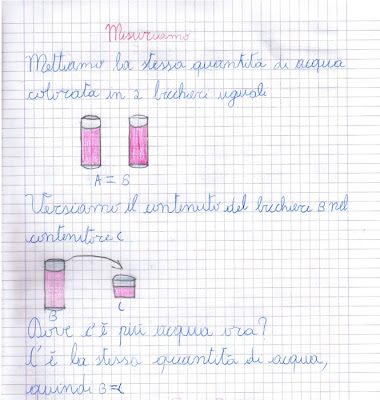 Misuriamo
Mettiamo la stessa quantità di acqua
colorata in 2 bicchieri uguali
A = B
Versiamo il contenuto del bicchiere B nel
contenitore C
B C
Dove c'è più acqua ora?
C'è la stessa quantità di acqua,
quindi B=C